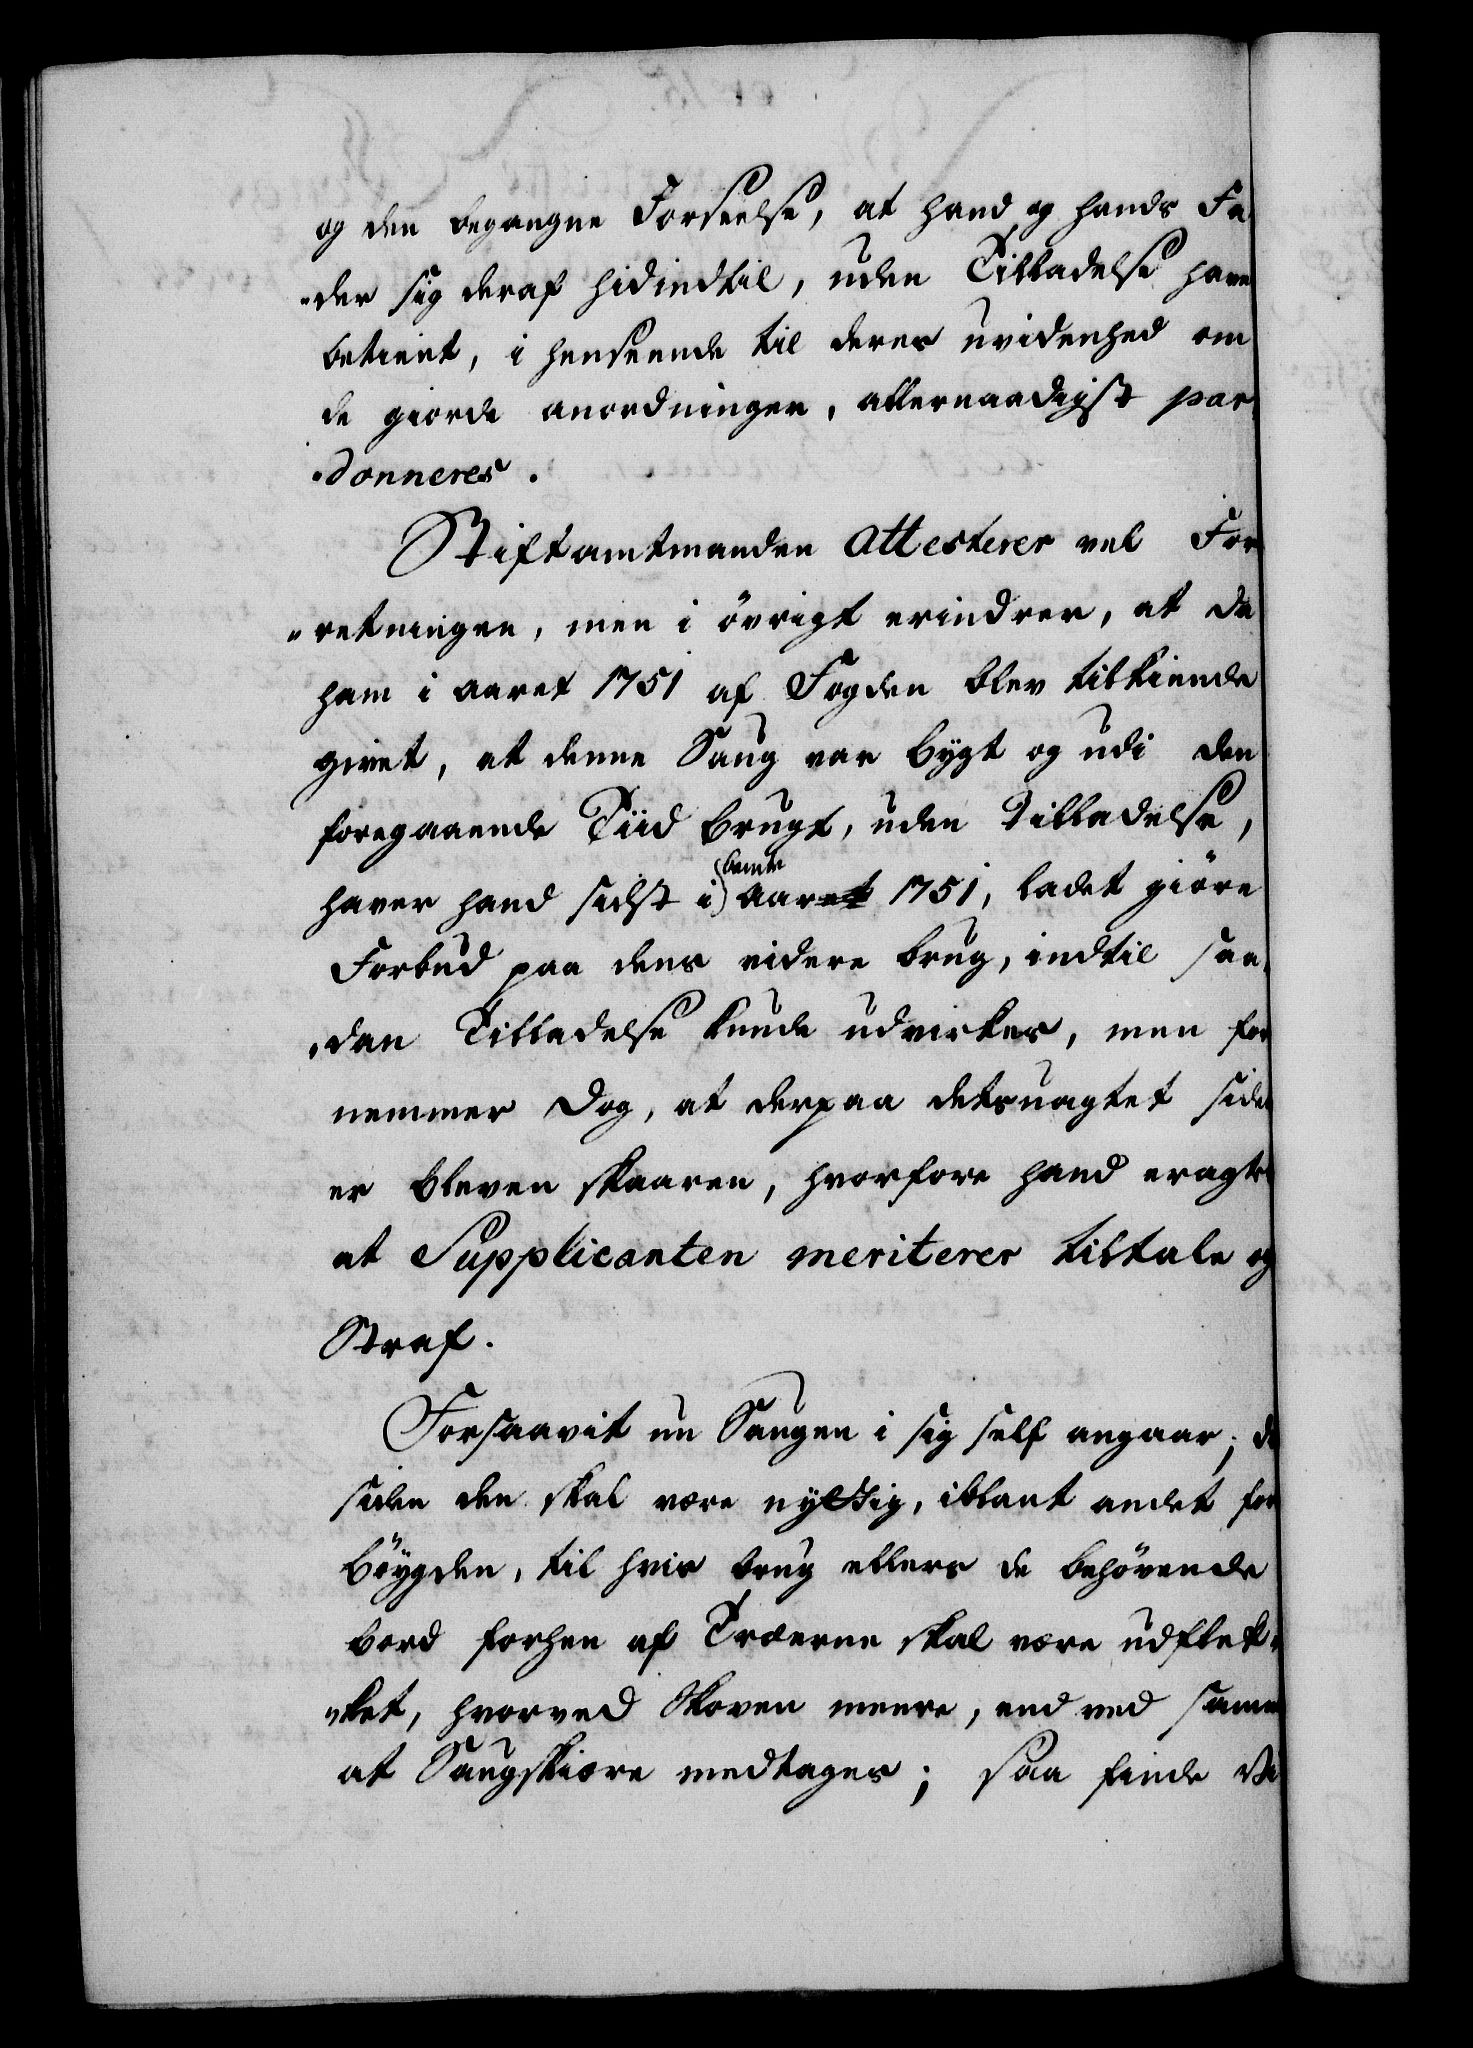 og den begangne Forseelse, at hand og hands Fa
-der sig deraf hidindtil, uden Tilladelse have
betient, i henseende til deres uvidenhed om
de giorde anordninger, allernaadigst par
-donneres.
Stiftamtmanden Attesterer vel For
-retningen, men i övrigt erindrer, at da
ham i aaret 1751 af Fogden blev tilkiende
givet, at denne Saug var bygt og udi den
foregaaende Tiid brugt, uden Tilladelse,
haver hand sidst i bemte aaret 1751, ladet giöre
Forbud paa dens videre brug, indtil saa
-dan Tilladelse kunde udvirkes, men for
nemmer dog, at derpaa detsuagtet siden
er bleven skaaren, hvorfore hand eragter
at Supplicanten meriterer tiltale og
Straf.
Forsaavit nu Saugen i sig self angaar; da
siden den skal være nyttig, iblant andet for
Böygden, til hvis brug ellers de behövende
bord forhen af Træerne skal være udflek-
-ket, hvorved Skoven meere, end ved samme
at Saugskiære medtages; saa finde Vi